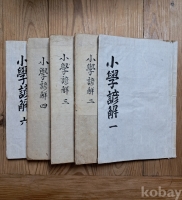 小學諺解 一
小學諺解 二
小學諺解 三
小學諺解 四
小學諺解 六
kobay